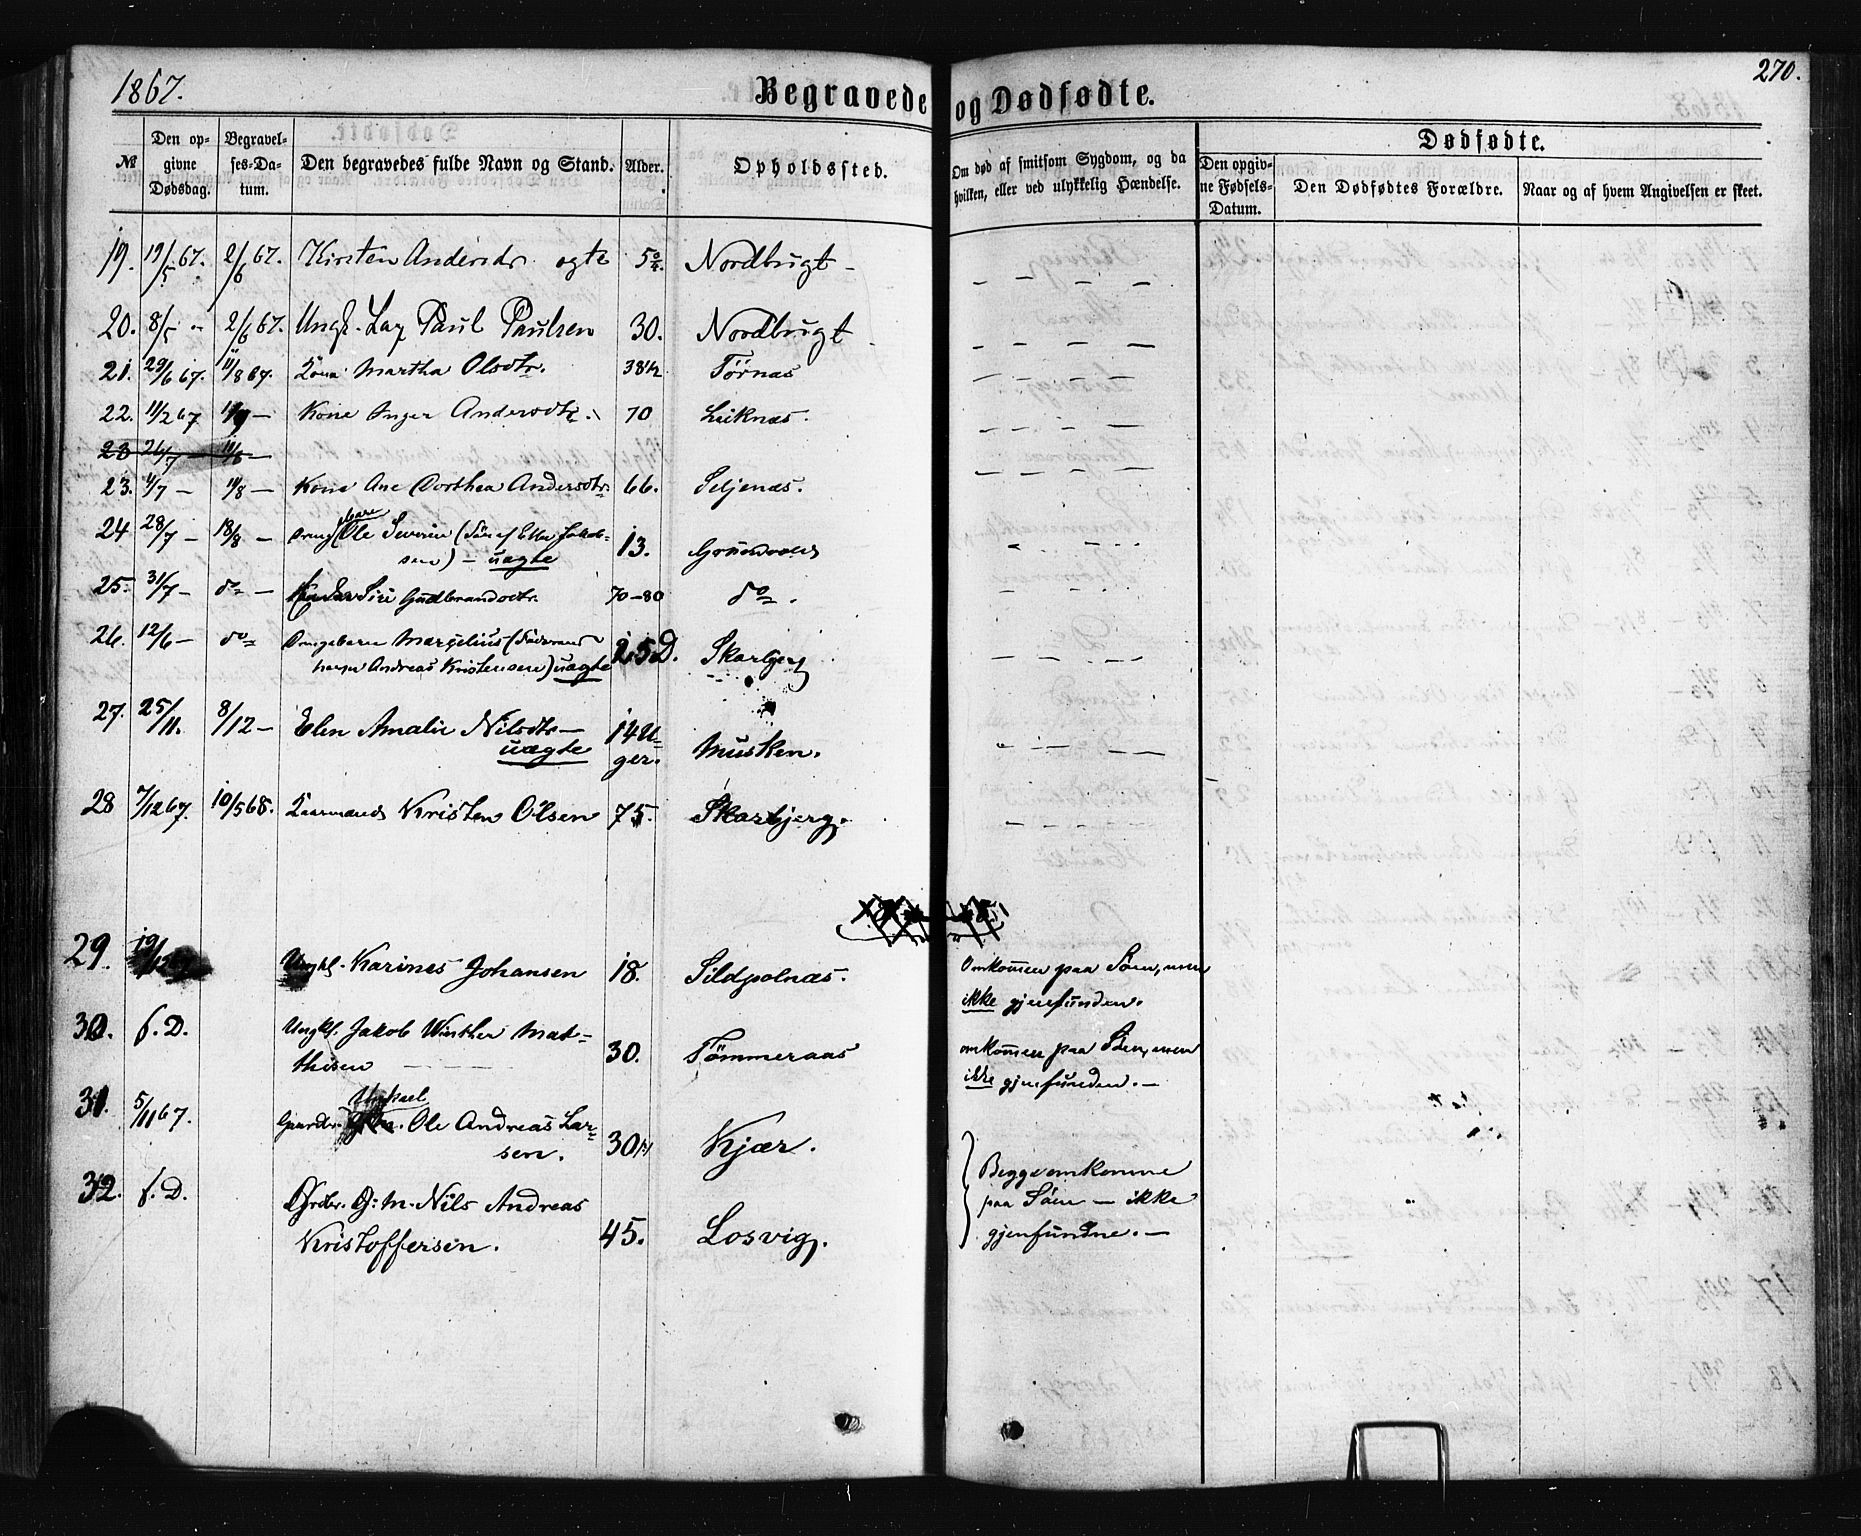 1867.
Begravede og Dødfødte.
270.
Dødfødte.
№
Den opgivne Dødsdag.
Begravelses-Datum.
Den begravedes fulde Navn og Stand.
Alder.
Opholdssted.
Om død af smitsom Sygdom, og da hvilken, eller ved ulykkelig Hændelse.
Den opgivne Fødsels-Datum.
Den Dødfødtes Forældre.
Naar og af hvem Angivelsen er skeet.
19. 19/5 67. 2/6 67. Kirsten Andersdr ogte Nordbugt
20. 8/5 - 2/6 67. Ungk. Paul Paulsen 30. Nordbugt
21. 29/6 67. 11/8 67. Kone Martha Olsdtr. 38 Tørnæs
22. 11/2 67 Kone Inger Andersdtr. 70 Leiknæs.
23 26/7 - 11/8 -
23. 4/7 - 11/8 - Kone Ane Dorthea Andersdtr 66. Seljenæs.
24 28/7 - 18/8 - Ole Severin (Søn af Jakob-
sen) - uægte 13.
25. 31/7 - do - Siri Gudbrandsdtr. 70-80 do.
26. 12/6 - do Drengebarn Marselius
Andreas Kristensen) uægte D. Skarbjerg
27. 25/11. 8/12 - Elen Amalie Nilsdtr -
uægte 14 U-
ger. Musken.
28 7/12 67. 10/5 68. Kaarmands Kristen Olsen 75. Skarbjerg.
29. Ungkl. Karines Johansen 18. Sildpolnæs. Omkommen paa Søen, men
ikke gjenfunden.
30. f. D. Ungkl. Jakob Winther Mat-
thisen 30. Tømmeraas omkommen paa Søen, men
ikke gjenfunden. -
31. 5/11 67. Mikael
Gaardbr. Ole Andreas Lar-
sen. 30 Kjær.
32. f. D. Grdbr. G: m. Nils Andreas
Kristoffersen. 45. Losvig.
Begge omkomne
paa Søen - ikke
gjenfundne. -